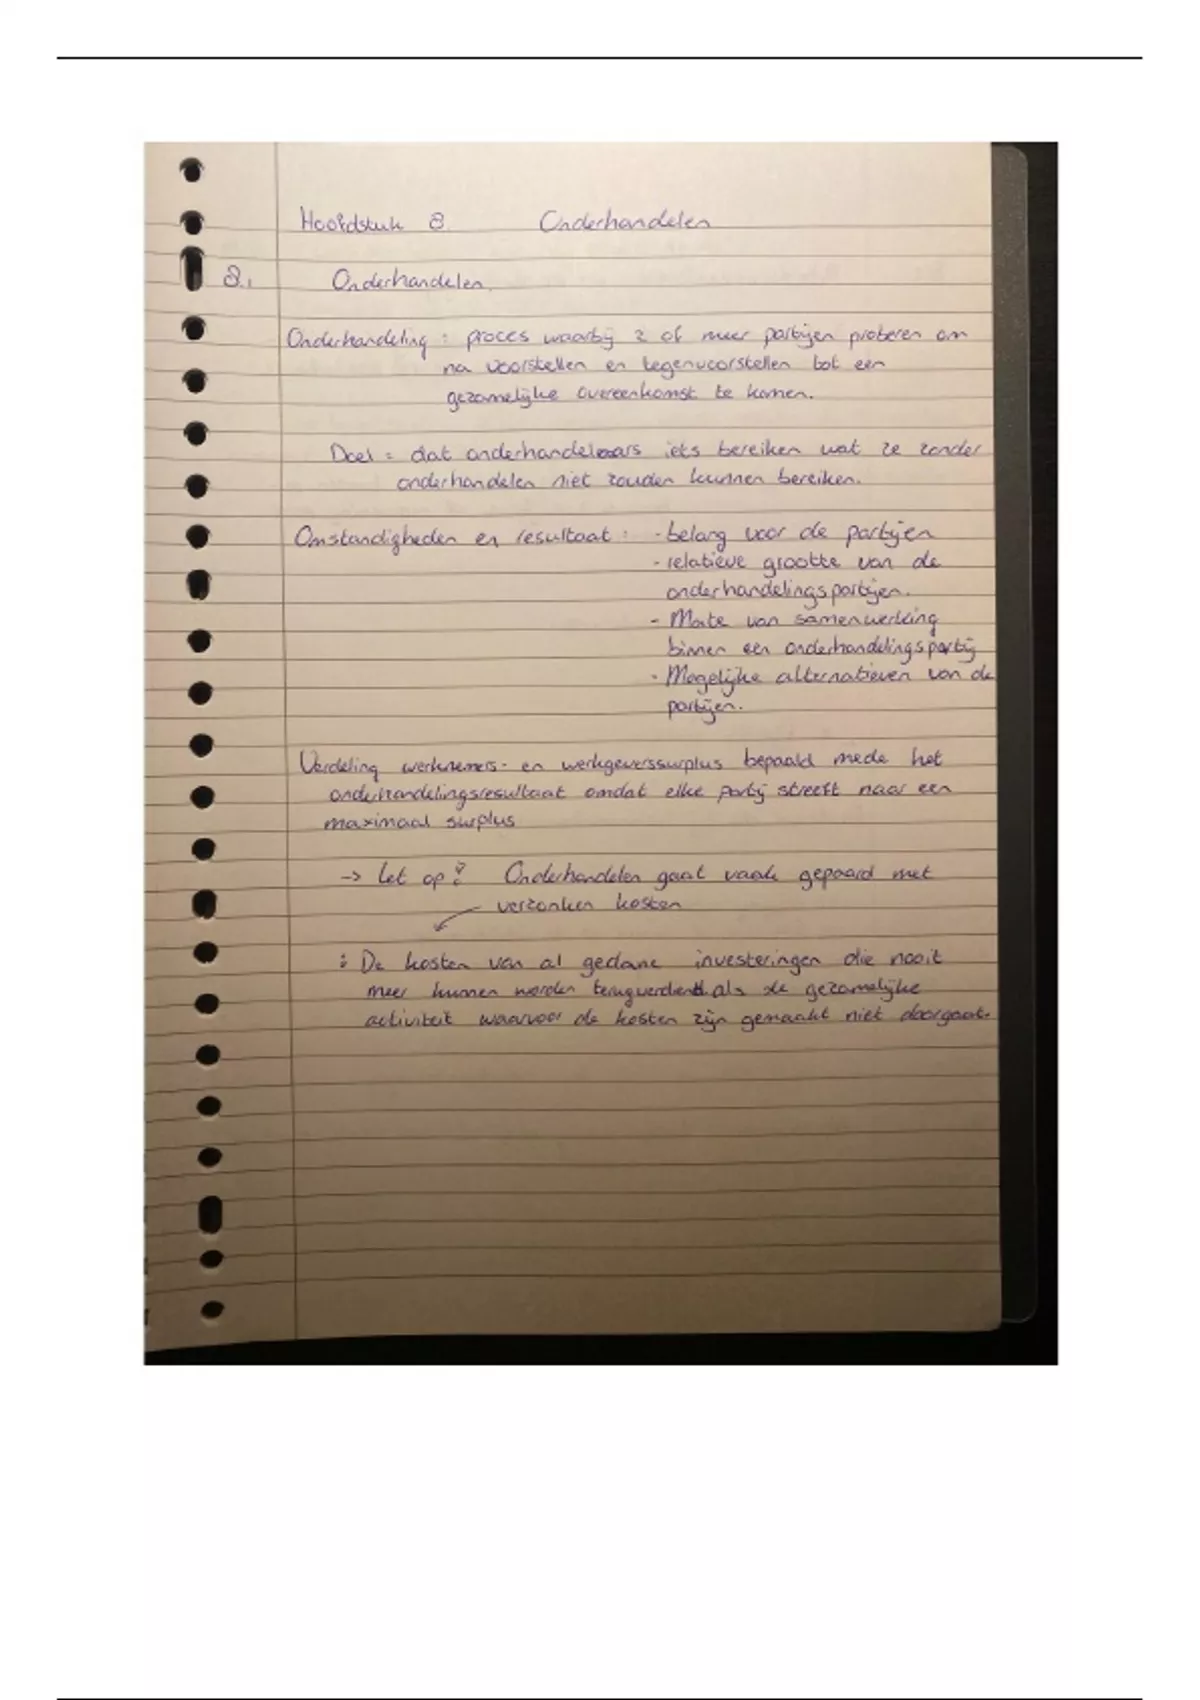 Hoofdstuk 8. Onderhandelen
8.1 Onderhandelen.
Onderhandeling : proces waarbij 2 of meer partijen proberen om
na voorstellen en tegenvoorstellen tot een
gezamelijke overeenkomst te komen.
Doel = dat onderhandelaars iets bereiken wat ze zonder
onderhandelen niet zouden kunnen bereiken.
Omstandigheden en resultaat : - belang voor de partijen
- relatieve grootte van de
onderhandelingspartijen.
- Mate van samenwerking
binnen een onderhandelingspartij
- Mogelijke alternatieven van de
partijen.
Verdeling werknemers- en werkgeverssurplus bepaald mede het
onderhandelingsresultaat omdat elke partij streeft naar een
maximaal surplus
-> Let op! Onderhandelen gaat vaak gepaard met
verzonken kosten
: De kosten van al gedane investeringen die nooit
meer kunnen worden terugverdiend als de gezamelijke
activiteit waarvoor de kosten zijn gemaakt niet doorgaat.